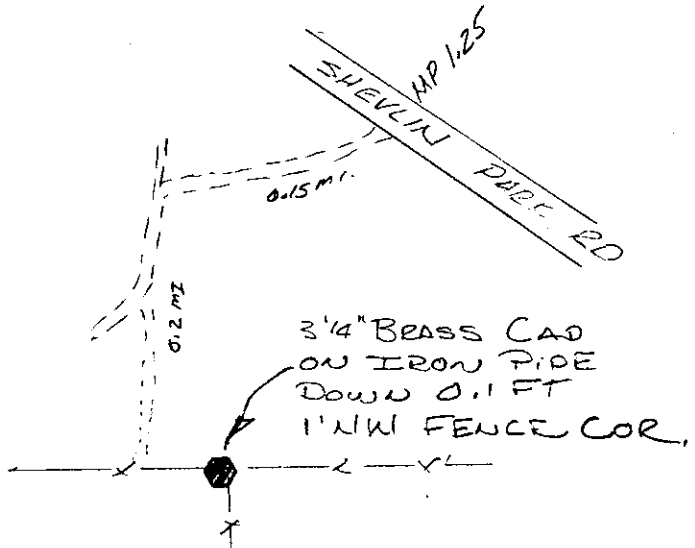 MP 1.25
SHEVLIN PARK RD
0.15 MI.
0.2 MI
3 1/4" BRASS CAP
ON IRON PIPE
DOWN 0.1 FT
1' NW FENCE COR.